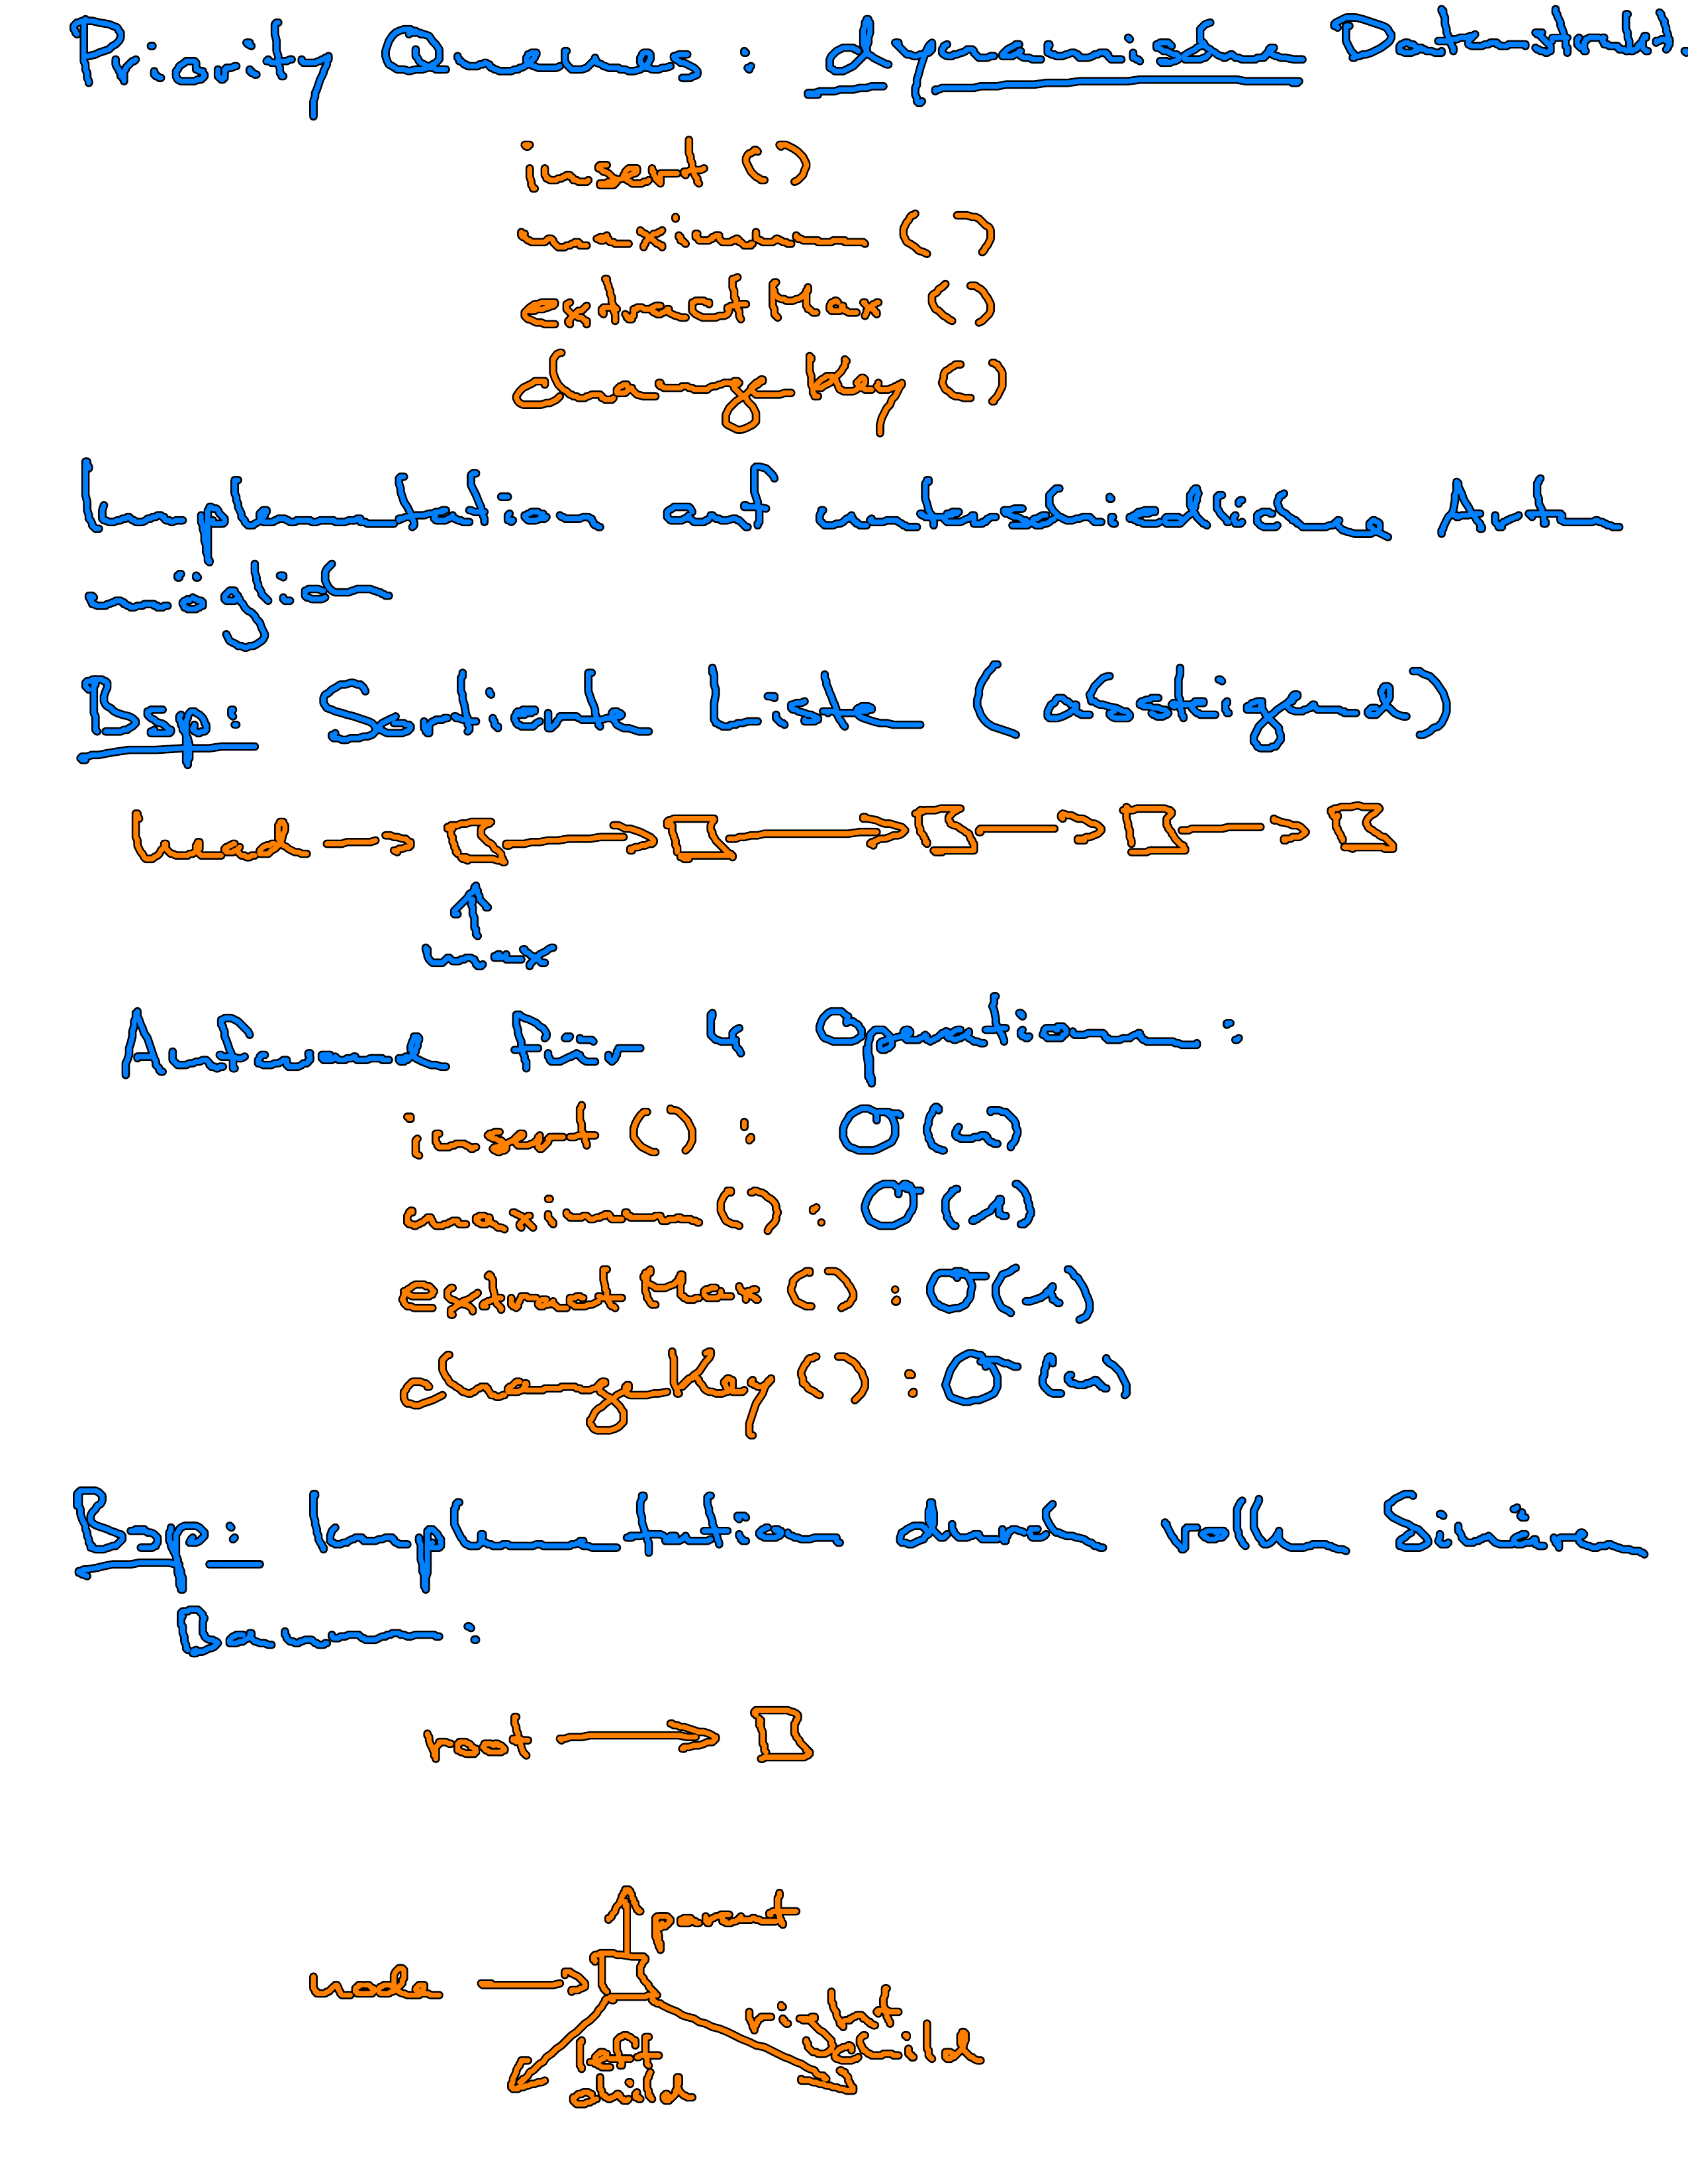 Priority Queues : dynamische Datenstrukt.
insert ()
maximum ()
extractMax ()
changeKey ()
Implementation auf unterschiedliche Arten
möglich
Bsp: Sortierte Liste (absteigend)
head
max
Aufwand für 4 Operationen :
insert () : O(n)
maximum () : O(1)
extractMax () : O(1)
changeKey () : O(n)
Bsp: Implementation durch vollen binären
Baum :
root
parent
node
right
child
left
child